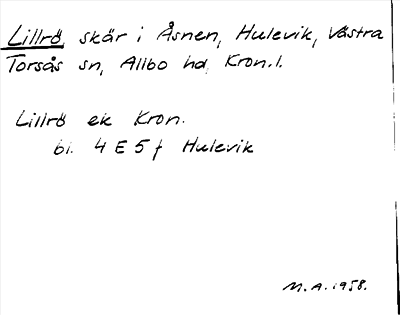 Lillrö, skär i Åsnen, Hulevik, Västra
Torsås sn, Allbo hd, Kron.l.
Lillrö ek Kron.
bl. 4 E 5 f Hulevik
M.A. 1958.